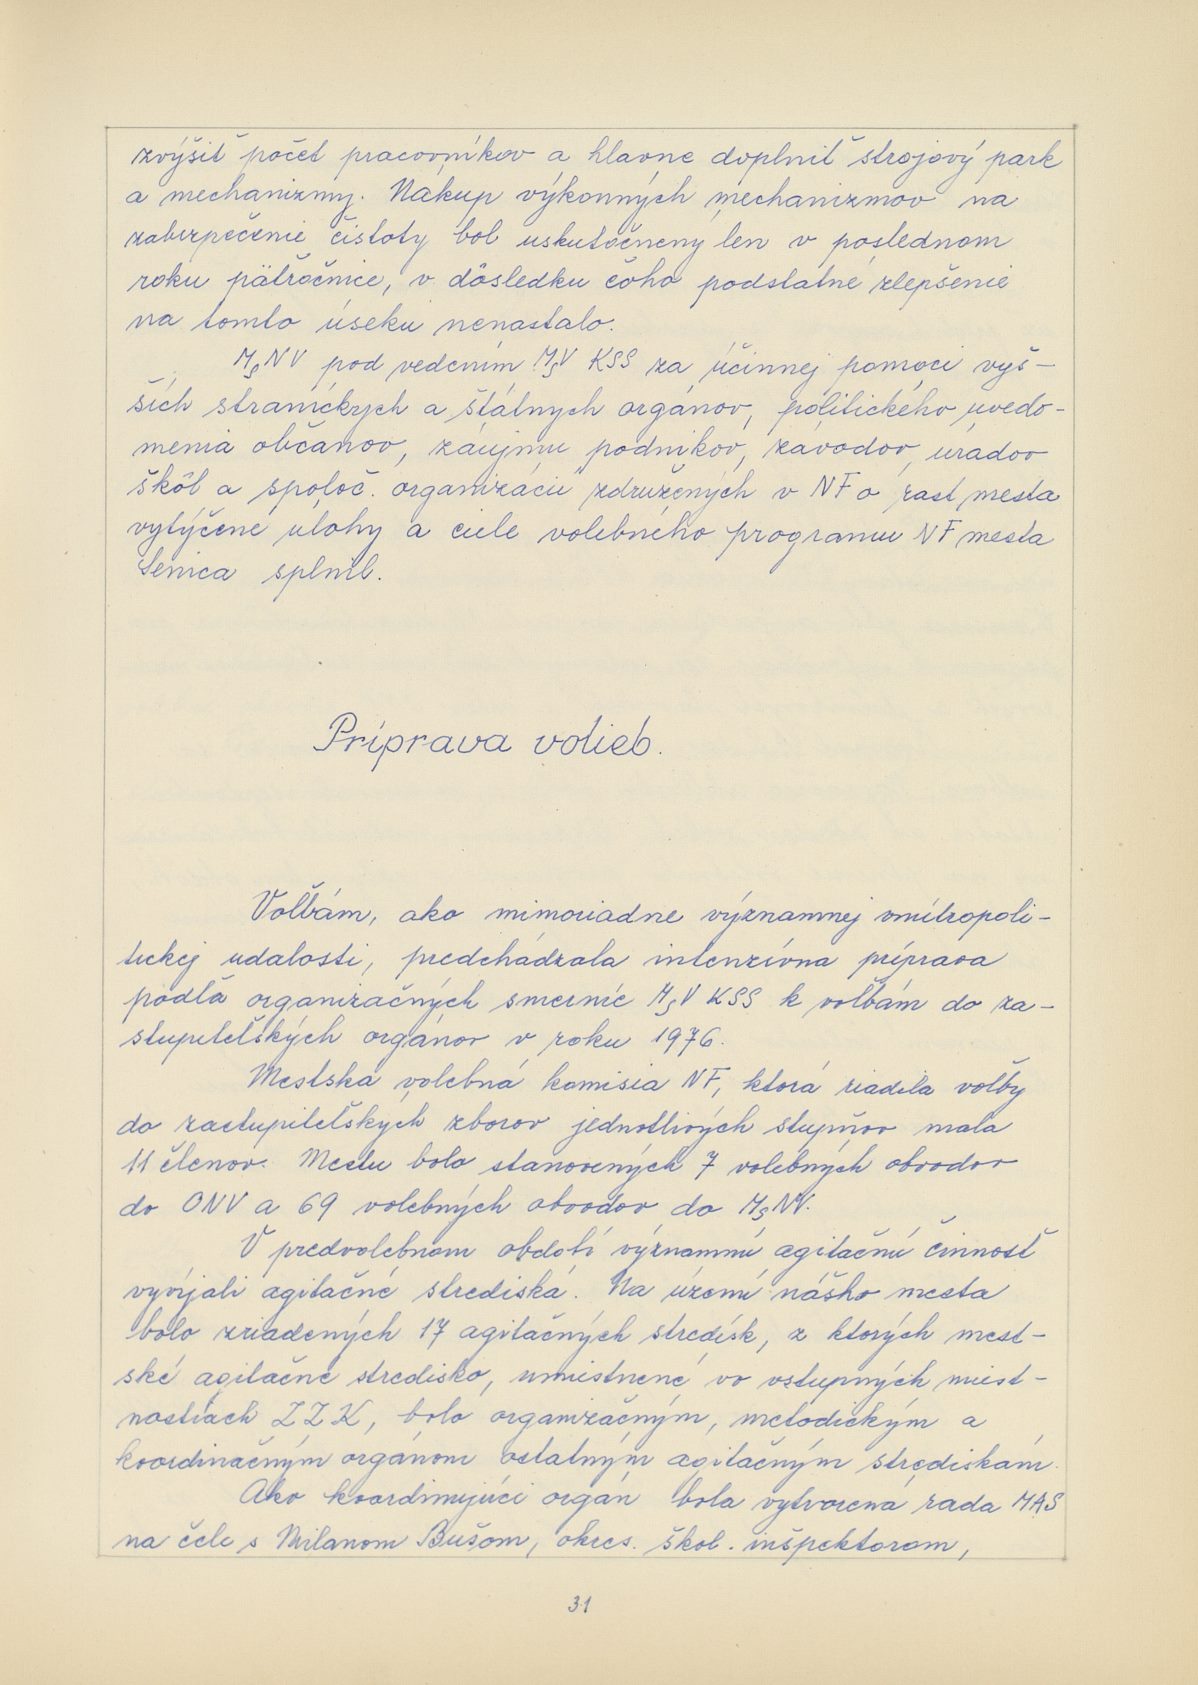 zvýšiť počet pracovníkov a hlavne doplniť strojový park
a mechanizmy. Nákup výkonných mechanizmov na
zabezpečenie čistoty bol uskutočnený len v poslednom
roku päťročnice, v dôsledku čoho podstatné zlepšenie
na tomto úseku nenastalo.
MsNV pod vedením MsV KSS za účinnej pomoci vyš-
ších straníckych a štátnych orgánov, politického uvedo-
menia občanov, záujmu podnikov, závodov, úradov
škôl a spoloč. organizácií združených v NF o rast mesta
vytýčené úlohy a ciele volebného programu NF mesta
Senica splnil.
Príprava volieb.
Voľbám, ako mimoriadne významnej vnútropoli-
tickej udalosti, predchádzala intenzívna príprava
podľa organizačných smerníc MsV KSS k voľbám do za-
stupiteľských orgánov v roku 1976.
Mestská volebná komisia NF, ktorá riadila voľby
do zastupiteľských zborov jednotlivých stupňov mala
11 členov. Mestu bolo stanovených 7 volebných obvodov
do ONV a 69 volebných obvodov do MsNV.
V predvolebnom období významnú agitačnú činnosť
vyvíjali agitačné strediská. Na území nášho mesta
bolo zriadených 17 agitačných stredísk, z ktorých mest-
ské agitačné stredisko, umiestnené vo vstupných miest-
nostiach ZZK, bolo organizačným, metodickým a
koordinačným orgánom ostatným agitačným strediskám.
Ako koordinujúci orgán bola vytvorená rada MAS
na čele s Milanom Bušom, okres. škol. inšpektorom,
31